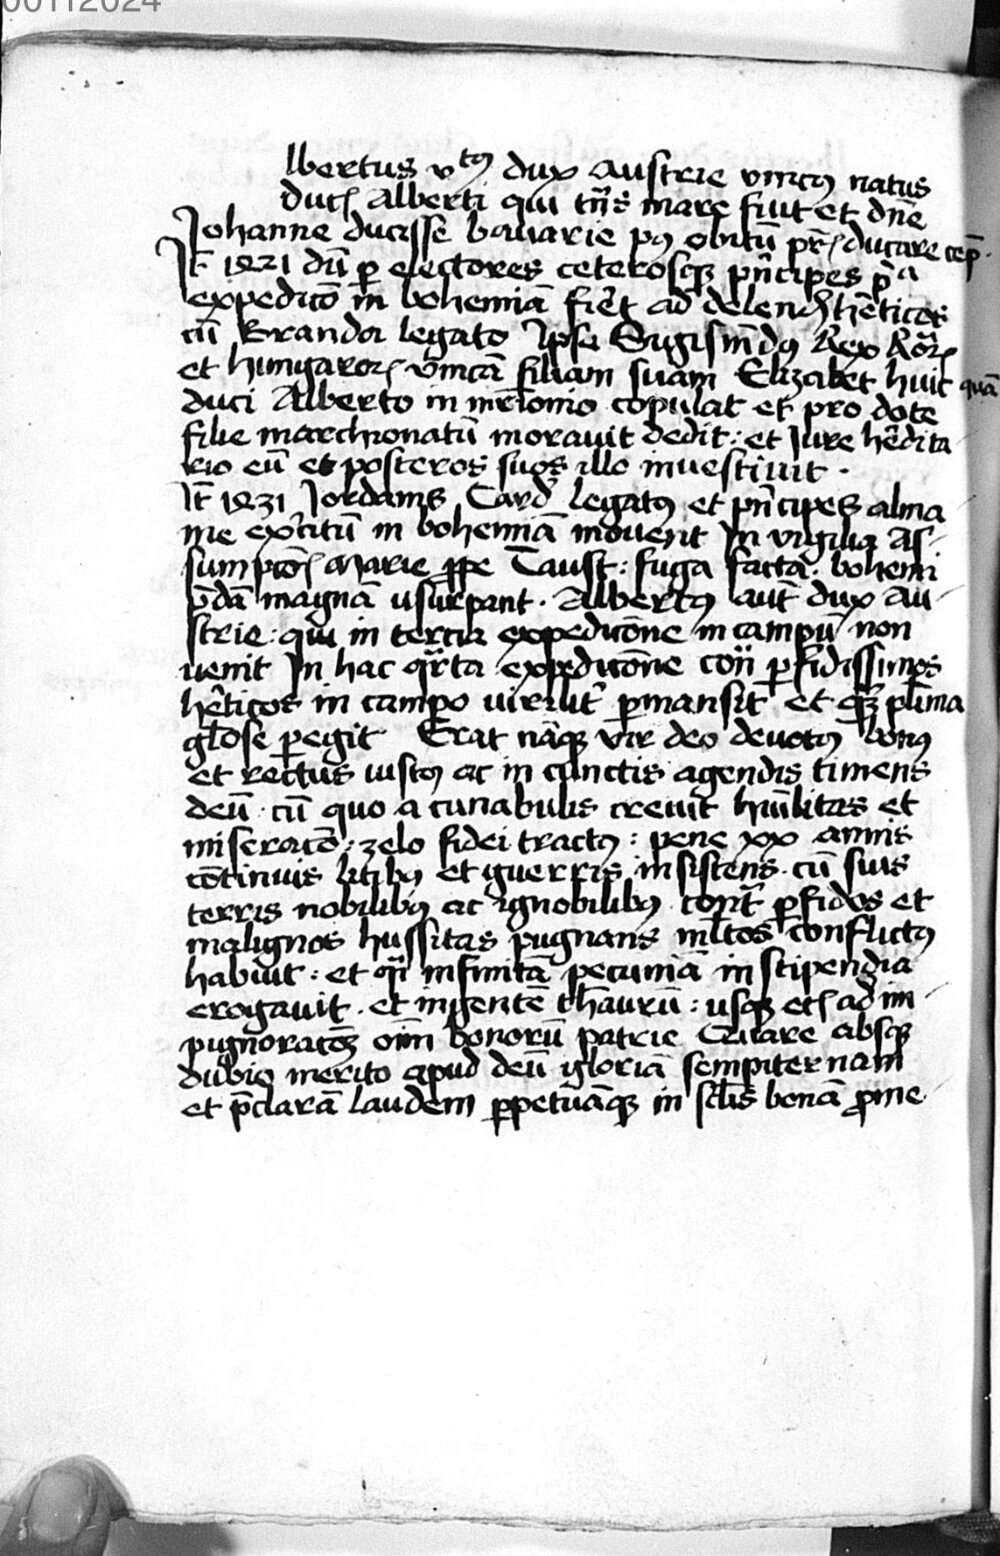 00112024
lbertus vtꝰ dux austrie vnicꝰ natus
duc̄ Alberti qui tn̄s mare fiuit et dn̄e
Johanne ducisse bauarie pꝰ obitū pr̄ ducare cep̄
It̄ 1421 dū ꝑ electores ceterosqꝫ pn̄cipes pͥa
expedicō in bohemiā fiēt ad delend hēticos
cū Branda legato Ipse Sugismūdꝰ Rex Rōr
et hungaror vnicā filiam suam Elizabet huic
duci Alberto in mr̄iomo copulat et pro dote
filie marchionatū morauit dedit : et Jure hēdita
rio eū et posteros suos illo inuestiuit .
It̄ 1431 Jordanis Card legatꝰ et pn̄cipes alma
nie exc̄itū in bohemiā mouerit In vigilia As
sumpcōis Marie ꝓpe Taust : fuga facta . bohemi
p̄dā magnā vsurpant . Albertꝰ aut̄ dux Au
strie : qui in tercia expedicōne in campū non
uenit In hac qͣrta expedicōne con̄ ꝑfidissimos
hēticos in campo virilit̄ ꝑmansit et qꝫ pl̄ima
gl̄ose ꝑegit Erat nāqꝫ vir deo deuotꝰ bonꝰ
et rectus iustꝰ ac in cunctis agendis timens
deū . cū quo a cunabulis creuit hūilitas et
miseracō : zelo fidei tractꝰ : pene xx annis
cōtinuis litibꝰ et guerris insistens . cū suis
terris nobilibꝰ ac ignobilibꝰ contͣ ꝑfidos et
malignos hussitas pugnans ml̄tos conflictꝰ
habuit : et qͣi infinitā pecuniā in stipendia
erogauit . et ingentē thaurū : usqꝫ et ad im
pugnoracōꝫ oīm bonorū patrie Quare absqꝫ
dubio merito apud deū gloriā sempiternam
et p̄clarā laudem ꝑpetuāqꝫ in scl̄is bonā ꝓme